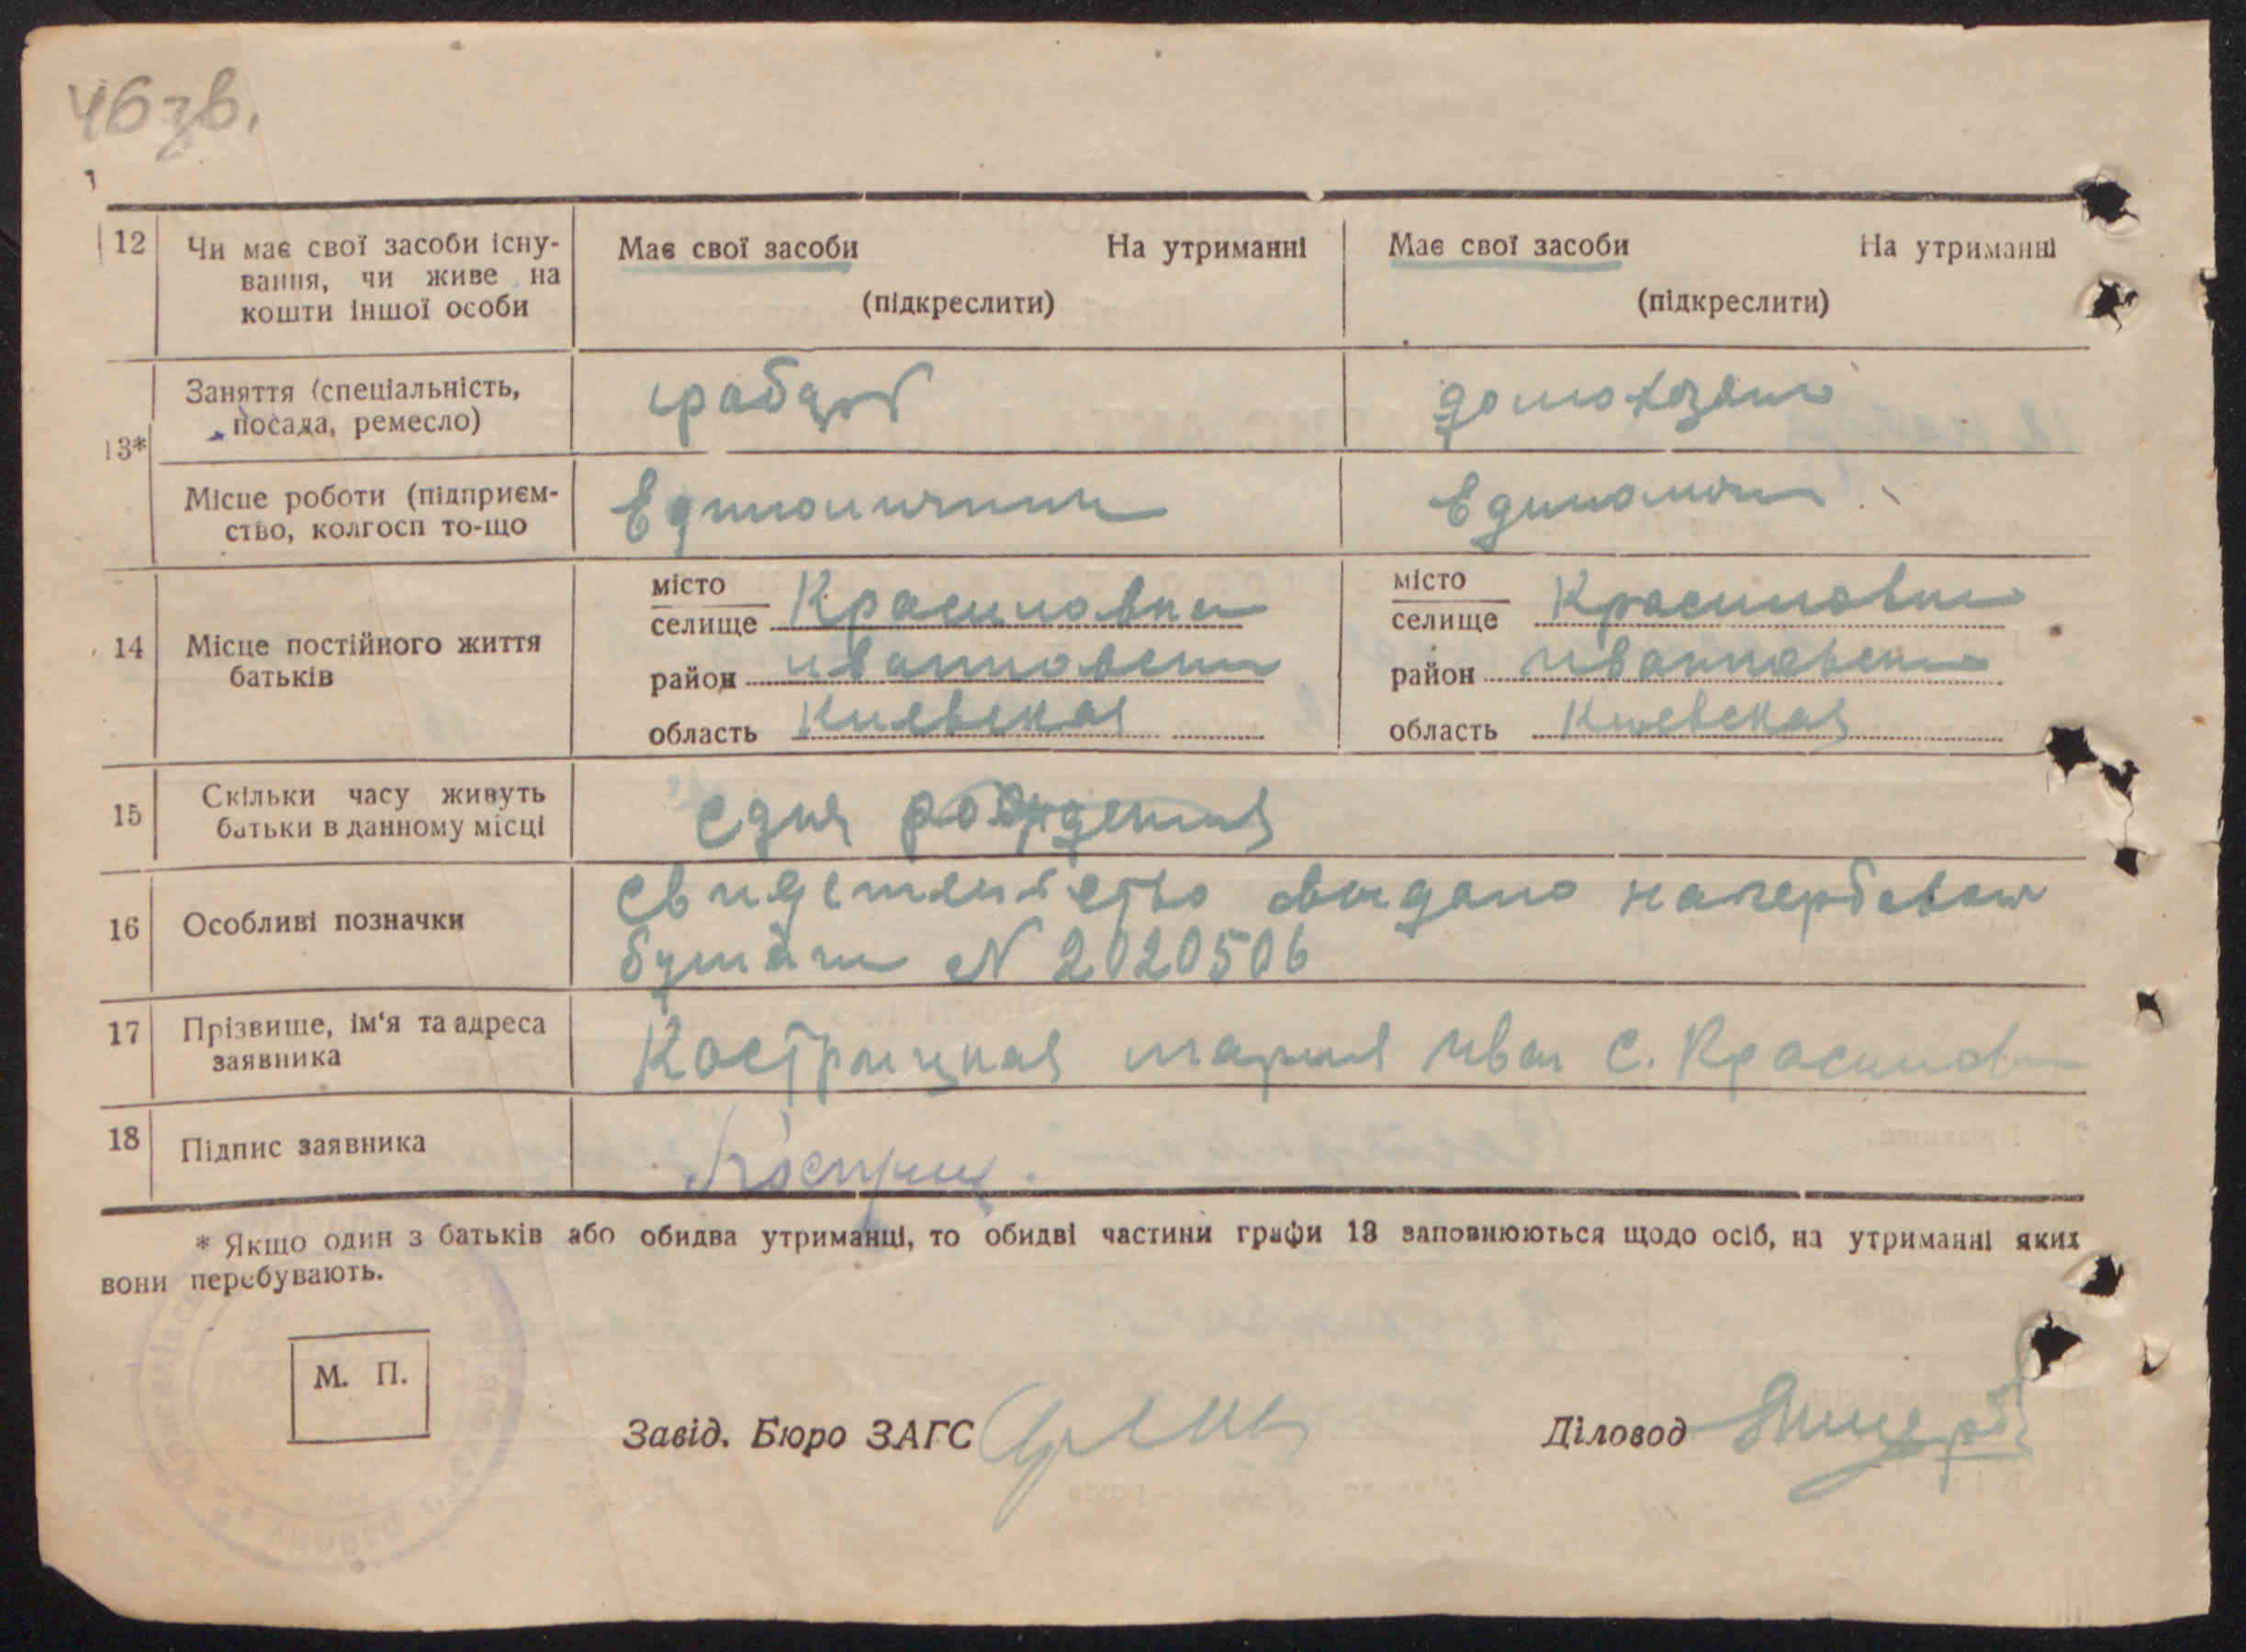 46 зв.
12 Чи має свої засоби існу- Має свої засоби На утриманні Має свої засоби На утриманні
вання, чи живе на
кошти іншої особи (підкреслити) (підкреслити)
Заняття (спеціальність, домохозяи
посада, ремесло)
13*
Місце роботи (підприєм- Единоличник Единолич
ство, колгосп то-що
місто місто
селище Красиловка селище Красиловка
14 Місце постійного життя
батьків
район Иванковски район Иванковски
область Киевская область Киевская
15 Скільки часу живуть сдня рождения
батьки в данному місці
16 Особливі позначки Свидетельство выдано нагербовои
бумаги № 2020506
17 Прізвище, ім'я та адреса Кострицкая мария Иван С. Красиловк
заявника
18 Підпис заявника Костриц.
* Якщо один з батьків або обидва утриманці, то обидві частини графи 13 заповнюються щодо осіб, на утриманні яких
вони перебувають.
М. П.
Завід. Бюро ЗАГС Діловод